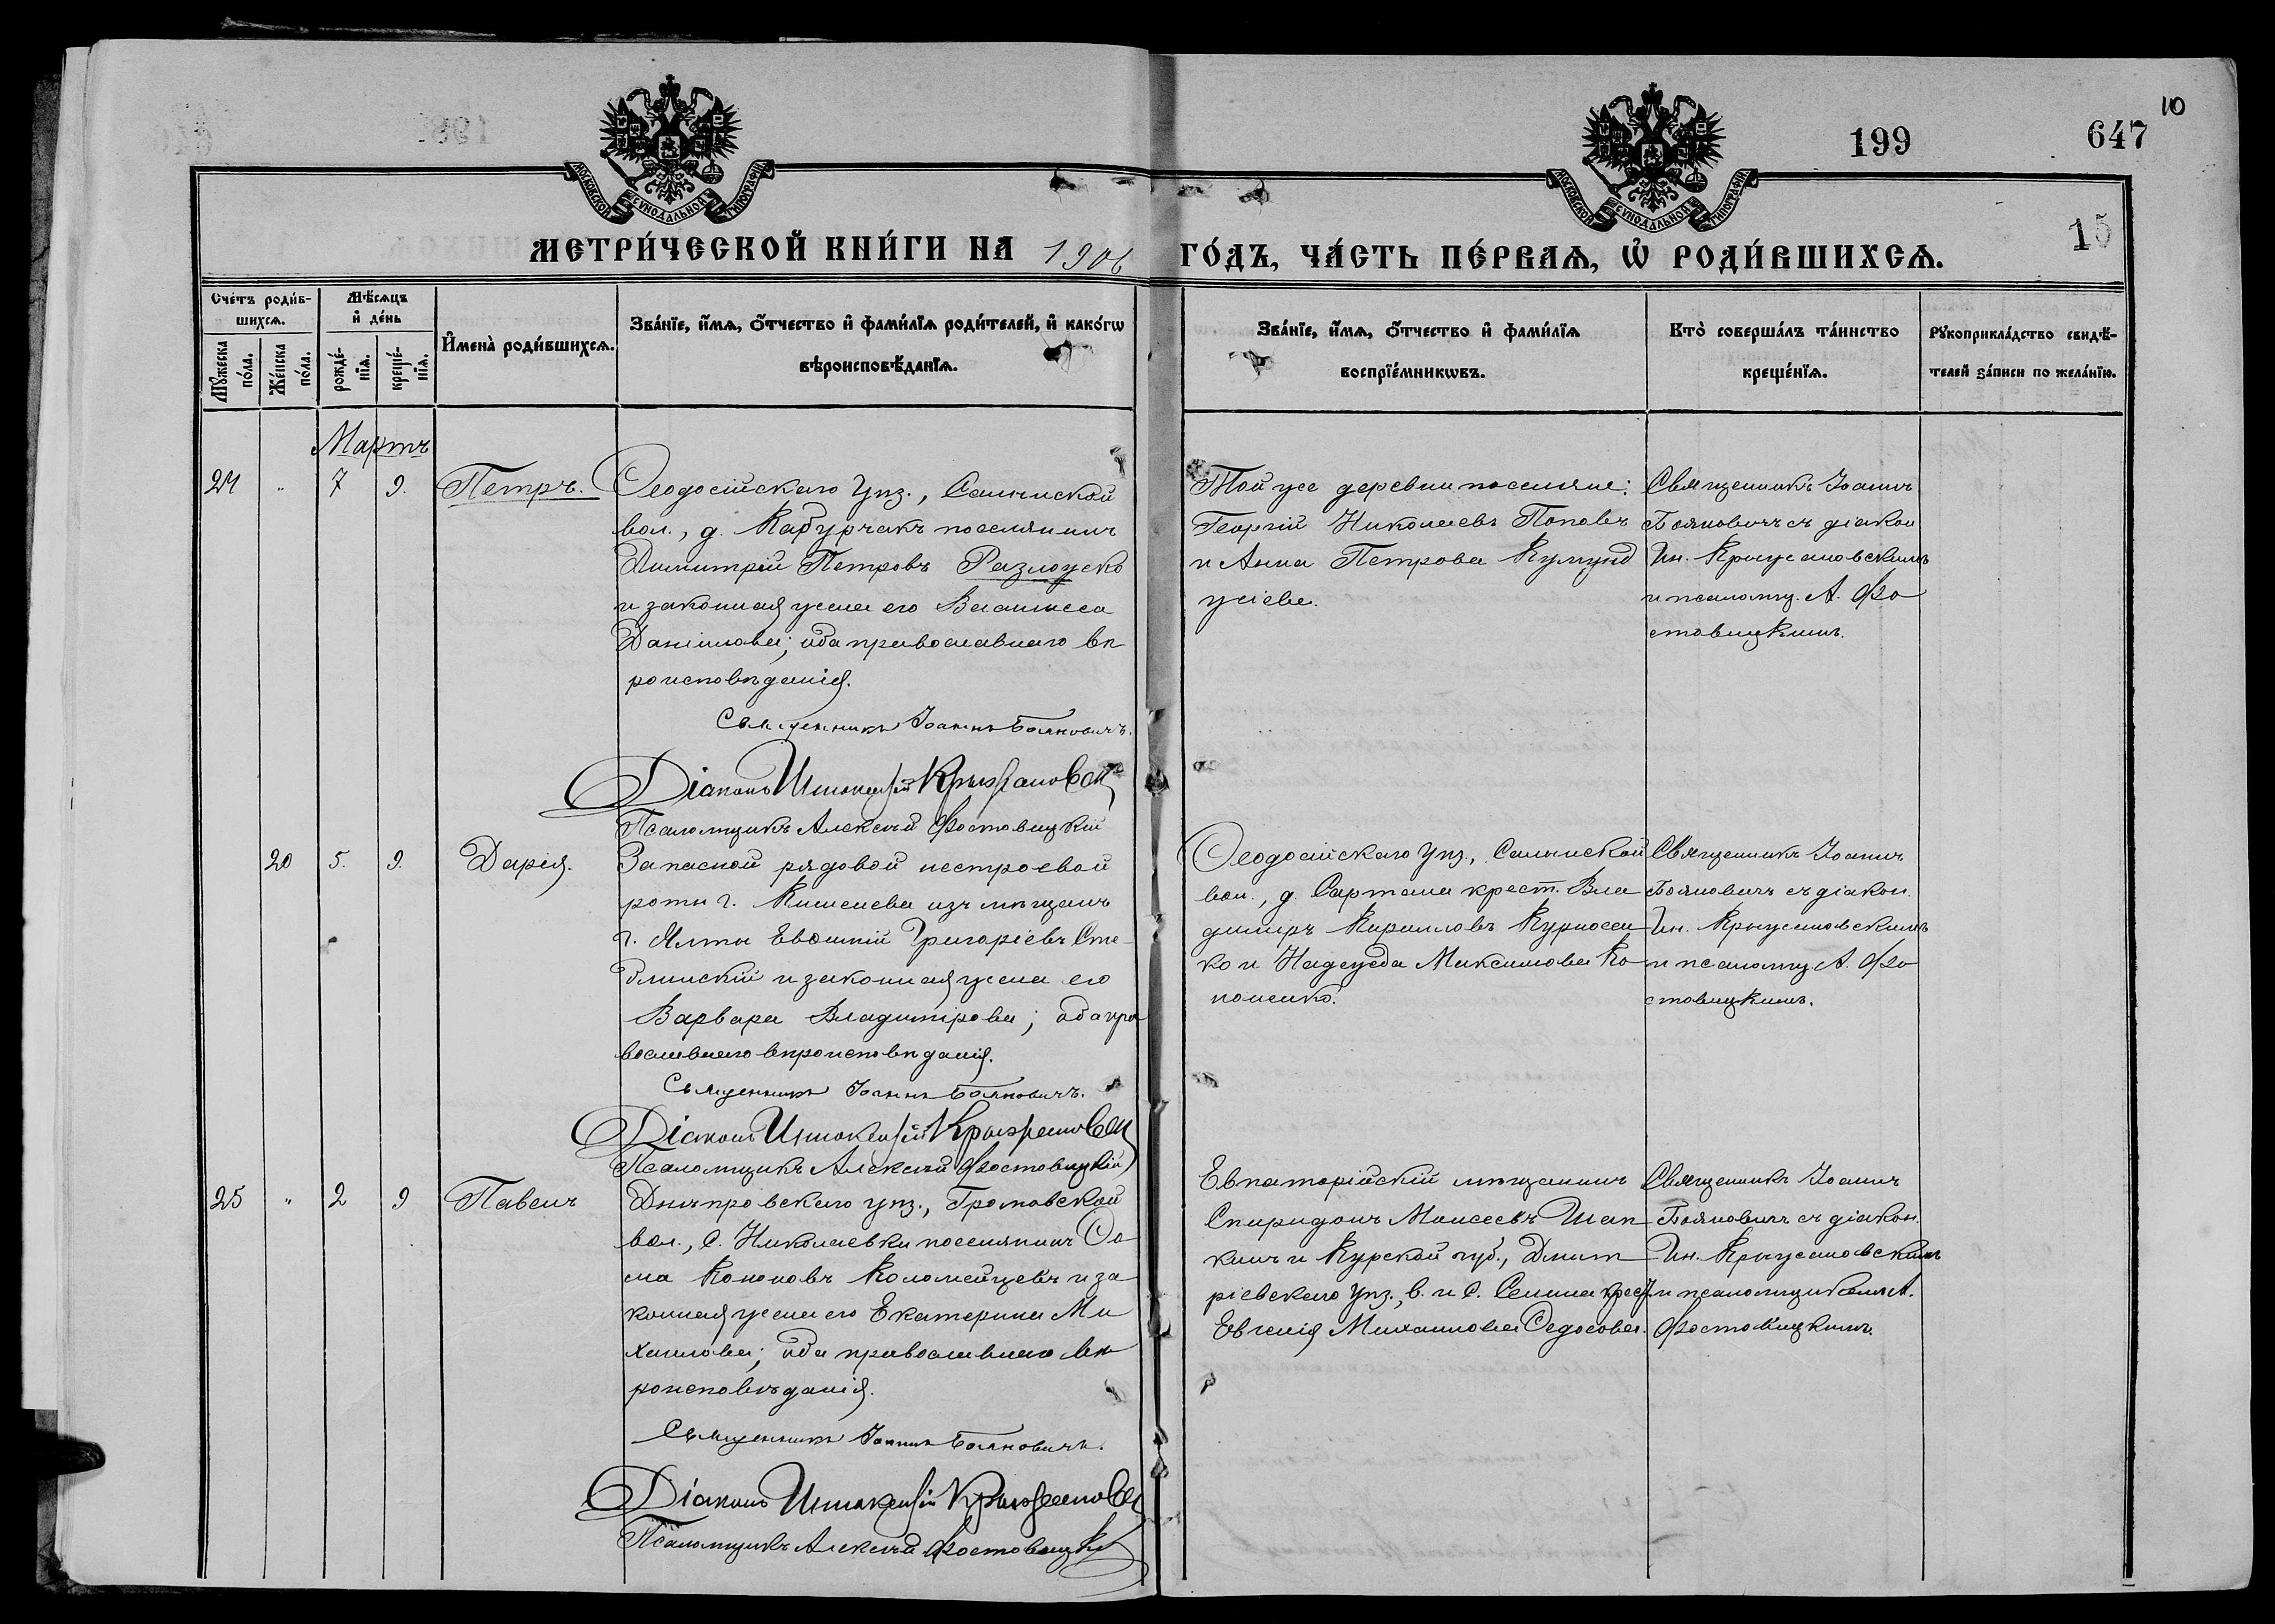 199
647
10
15
МОСКОВСКОЙ СѴНОДАЛЬНОЙ ТИПОГРАФІИ
МОСКОВСКОЙ СѴНОДАЛЬНОЙ ТИПОГРАФІИ
МЕТРИ́ЧЕСКОЙ КНИ́ГИ НА 1906 ГО́ДЪ, ЧА́СТЬ ПЕ́РВАѦ, Ѡ҆ РОДИ́ВШИХСѦ.
Сче́тъ роди́в-
шихсѧ.
Мѣ́сѧцъ
и҆ де́нь
Мꙋ́жеска
по́ла.
Же́нска
по́ла.
рожде́-
нїѧ.
креще́-
нїѧ.
И҆мена̀ роди́вшихсѧ.
Зва́нїе, и҆́мѧ, ѻ҆́тчество и҆ фами́лїѧ роди́телей, и҆ како́гѡ
вѣроисповѣ́данїѧ.
Зва́нїе, и҆́мѧ, ѻ҆́тчество и҆ фами́лїѧ
воспрїе́мникѡвъ.
Кто̀ соверша́лъ та́инство
креще́нїѧ.
Рꙋкоприкла́дство свидѣ́-
телей за́писи по жела́нїю.
Мартъ
24 " 7 9. Петръ.
Ѳеодосійскаго уѣз., Салынской
вол., д. Кабурчакъ поселянинъ
Димитрій Петровъ Разложко
и законная жена его Васисса
Даніилова; оба православнаго вѣ
роисповѣданія.
Священникъ Іоаннъ Бояновичъ.
Діаконъ Иннокентій Крыжановск
Псаломщикъ Алексѣй Фостовицкій
Той же деревни поселяне:
Георгій Николаевъ Поповъ
и Анна Петрова Кумунд
жіева.
Священникъ Іоаннъ
Бояновичъ съ діакон
Ин. Крыжановскимъ
и псаломщ. А. Фо
стовицкимъ.
20 5. 9. Дарія.
Запасной рядовой нестроевой
роты г. Кишенева изъ мѣщанъ
г. Ялты Евѳимій Григоріевъ Сте
блинскій и законная жена его
Варвара Владимірова; оба пра
вославнаго вѣроисповѣданія.
Священникъ Іоаннъ Бояновичъ.
Діаконъ Иннокентій Крыжановск
Псаломщикъ Алексѣй Фостовицкій
Ѳеодосійскаго уѣз., Салынской
вол., д. Сартана крест. Вла
диміръ Кирилловъ Курносен
ко и Надежда Максимова Ко
ноненко.
Священникъ Іоаннъ
Бояновичъ съ діакон.
Ин. Крыжановскимъ
и псаломщ А. Фо
стовицкимъ.
25 " 2 9 Павелъ
Днѣпровскаго уѣз., Громовской
вол., с. Николаевки поселянинъ Ѳо
ма Кононовъ Коломейцевъ и за
конная жена его Екатерина Ми
хаилова; оба православнаго вѣ
роисповѣданія.
Священникъ Іоаннъ Бояновичъ.
Діаконъ Иннокентій Крыжановск
Псаломщикъ Алексѣй Фостовицкій
Евпаторійскій мѣщанинъ
Спиридонъ Моисеевъ Шап
кинъ и Курской губ., Дмит
ріевскаго уѣз., в. и с. Селина крест
Евгенія Михаилова Ѳедосова.
Священникъ Іоаннъ
Бояновичъ съ діакон.
Ин. Крыжановскимъ
и псаломщикомъ А.
Фостовицкимъ.